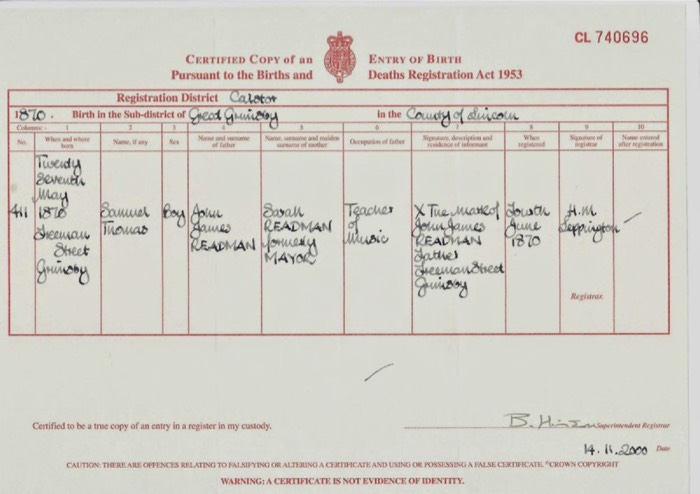 CL 740696
CERTIFIED COPY of an ENTRY OF BIRTH
Pursuant to the Births and Deaths Registration Act 1953
Registration District Caistor
1870. Birth in the Sub-district of Great Grimsby in the County of Lincoln
Columns:- 1 2 3 4 5 6 7 8 9 10
No. When and where born Name, if any Sex Name and surname of father Name, surname and maiden surname of mother Occupation of father Signature, description and residence of informant When registered Signature of registrar Name entered after registration
411
Twenty
Seventh
May
1870
Freeman
Street
Grimsby
Samuel
Thomas
Boy
John
James
READMAN
Sarah
READMAN
formerly
MAYOR
Teacher
of
Music
X The Mark of
John James
READMAN
Father
Freeman Street
Grimsby
Fourth
June
1870
H.M.
Leppington
Registrar
Certified to be a true copy of an entry in a register in my custody.
B. Superintendent Registrar
14.11.2000 Date
CAUTION: THERE ARE OFFENCES RELATING TO FALSIFYING OR ALTERING A CERTIFICATE AND USING OR POSSESSING A FALSE CERTIFICATE. ©CROWN COPYRIGHT
WARNING: A CERTIFICATE IS NOT EVIDENCE OF IDENTITY.